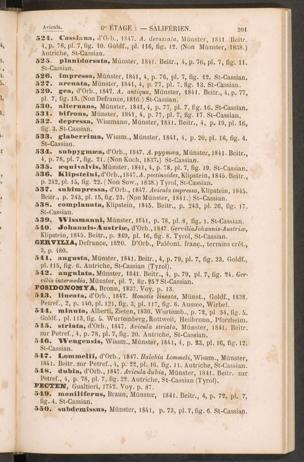 Avicula. 6e ÉTAGE : — SALIFÉRIEN. 201
524. Cassiana, d'Orb., 1847. A. decussata, Münster, 1841. Beitr.
4, p. 76, pl. 7, fig. 10. Goldf., pl. 116, fig. 12. (Non Münster, 1838.)
Autriche, St-Cassian.
525. planidorsata, Münster, 1841. Beitr., 4, p. 76, pl. 7, fig. 11.
St-Cassian.
526. impressa, Münster, 1841, 4, p. 76, pl. 7, fig. 12. St-Cassian.
527. arcuata, Münster, 1841, 4, p. 77, pl. 7, fig. 13. St-Cassian.
529. gea, d'Orb., 1847. A. antiqua, Münster, 1841, Beitr., 4, p. 77,
pl. 7, fig. 15. (Non Defrance, 1816.) St-Cassian.
530. alternans, Münster, 1841, 4, p. 77, pl. 7, fig. 16. St-Cassian.
531. bifrons, Münster, 1841, 4, p. 77, pl. 7, fig. 17. St-Cassian.
532. depressa, Wissmann, Münster, 1841. Beitr., 4, p. 19, pl. 16,
fig. 3. St-Cassian.
533. glaberrima, Wissm., Münster, 1841, 4, p. 20, pl. 16, fig. 4.
St-Cassian.
534. subpygmæa, d'Orb., 1847. A. pygmæa, Münster, 1841. Beitr.,
4, p. 78, pl. 7, fig. 21. (Non Koch, 1837.) St-Cassian.
535. æquivalvis, Münster, 1841, 4, p. 78, pl. 7, fig. 19. St-Cassian.
536. Klipsteini, d'Orb., 1847. A. pectinoides, Klipstein, 1845. Beitr.,
p. 242, pl. 15, fig. 22. (Non Sow., 1838.) Tyrol, St-Cassian.
537. subimpressa, d'Orb., 1847. Avicula impressa, Klipstein, 1845.
Beitr., p. 243, pl. 15, fig. 23. (Non Münster, 1841.) St-Cassian.
538. complanata, Klipstein, 1845. Beitr., p. 243, pl. 26, fig. 17.
St-Cassian.
539. Wissmanni, Münster, 1841, p. 78, pl. 8, fig. 1. St-Cassian.
540. Johannis-Austriæ, d'Orb., 1847. Gervilia Johannis-Austriæ,
Klipstein, 1845. Beitr., p. 249, pl. 16, fig. 8. Tyrol, St-Cassian.
GERVILIA, Defrance, 1820. D'Orb., Paléont. franç., terrains crét.,
3, p. 480.
541. angusta, Münster, 1841. Beitr., 4, p. 79, pl. 7, fig. 23. Goldf.,
pl. 115, fig. 6. Autriche, St-Cassian (Tyrol).
542. angulata, Münster, 1841. Beitr., 4, p. 79, pl. 7, fig. 24. Gervilia
POSIDONOMYA, Bronn, 1837. Voy. p. 13.
543. lineata, d'Orb., 1847. Monotis lineata, Münst., Goldf., 1838.
Petref., 2, p. 140, pl. 121, fig. 3, pl. 117, fig. 6. Aussee, Wirbel.
544. minuta, Alberti, Zieten, 1830, Wurtemb., p. 72, pl. 54, fig. 5.
Goldf., pl. 113, fig. 5. Wurtemberg, Rotweil, Heilbronn, Pforzheim.
545. striata, d'Orb., 1847. Avicula striata, Münster, 1841. Beitr.
zur Petref., 4, p. 78, pl. 7, fig. 20. Autriche, St-Cassian.
546. Wengensis, Wissm., Münster, 1841, 4, p. 23, pl. 16, fig. 12.
St-Cassian.
547. Lommelli, d'Orb., 1847. Halobia Lommeli, Wissm., Münster,
1841. Beitr. zur Petref., 4, p. 22, pl. 16, fig. 11. Autriche, St-Cassian.
548. dubia, d'Orb., 1847. Avicula dubia, Münster, 1841. Beitr. zur
Petref., 4, p. 78, pl. 7, fig. 22. Autriche, St-Cassian (Tyrol).
PECTEN, Gualtieri, 1742. Voy. p. 87.
549. moniliferus, Braun, Münster, 1841. Beitr., 4, p. 72, pl. 7,
fig. 4. St-Cassian.
550. subdemissus, Münster, 1841, p. 73, pl. 7, fig. 6. St-Cassian.